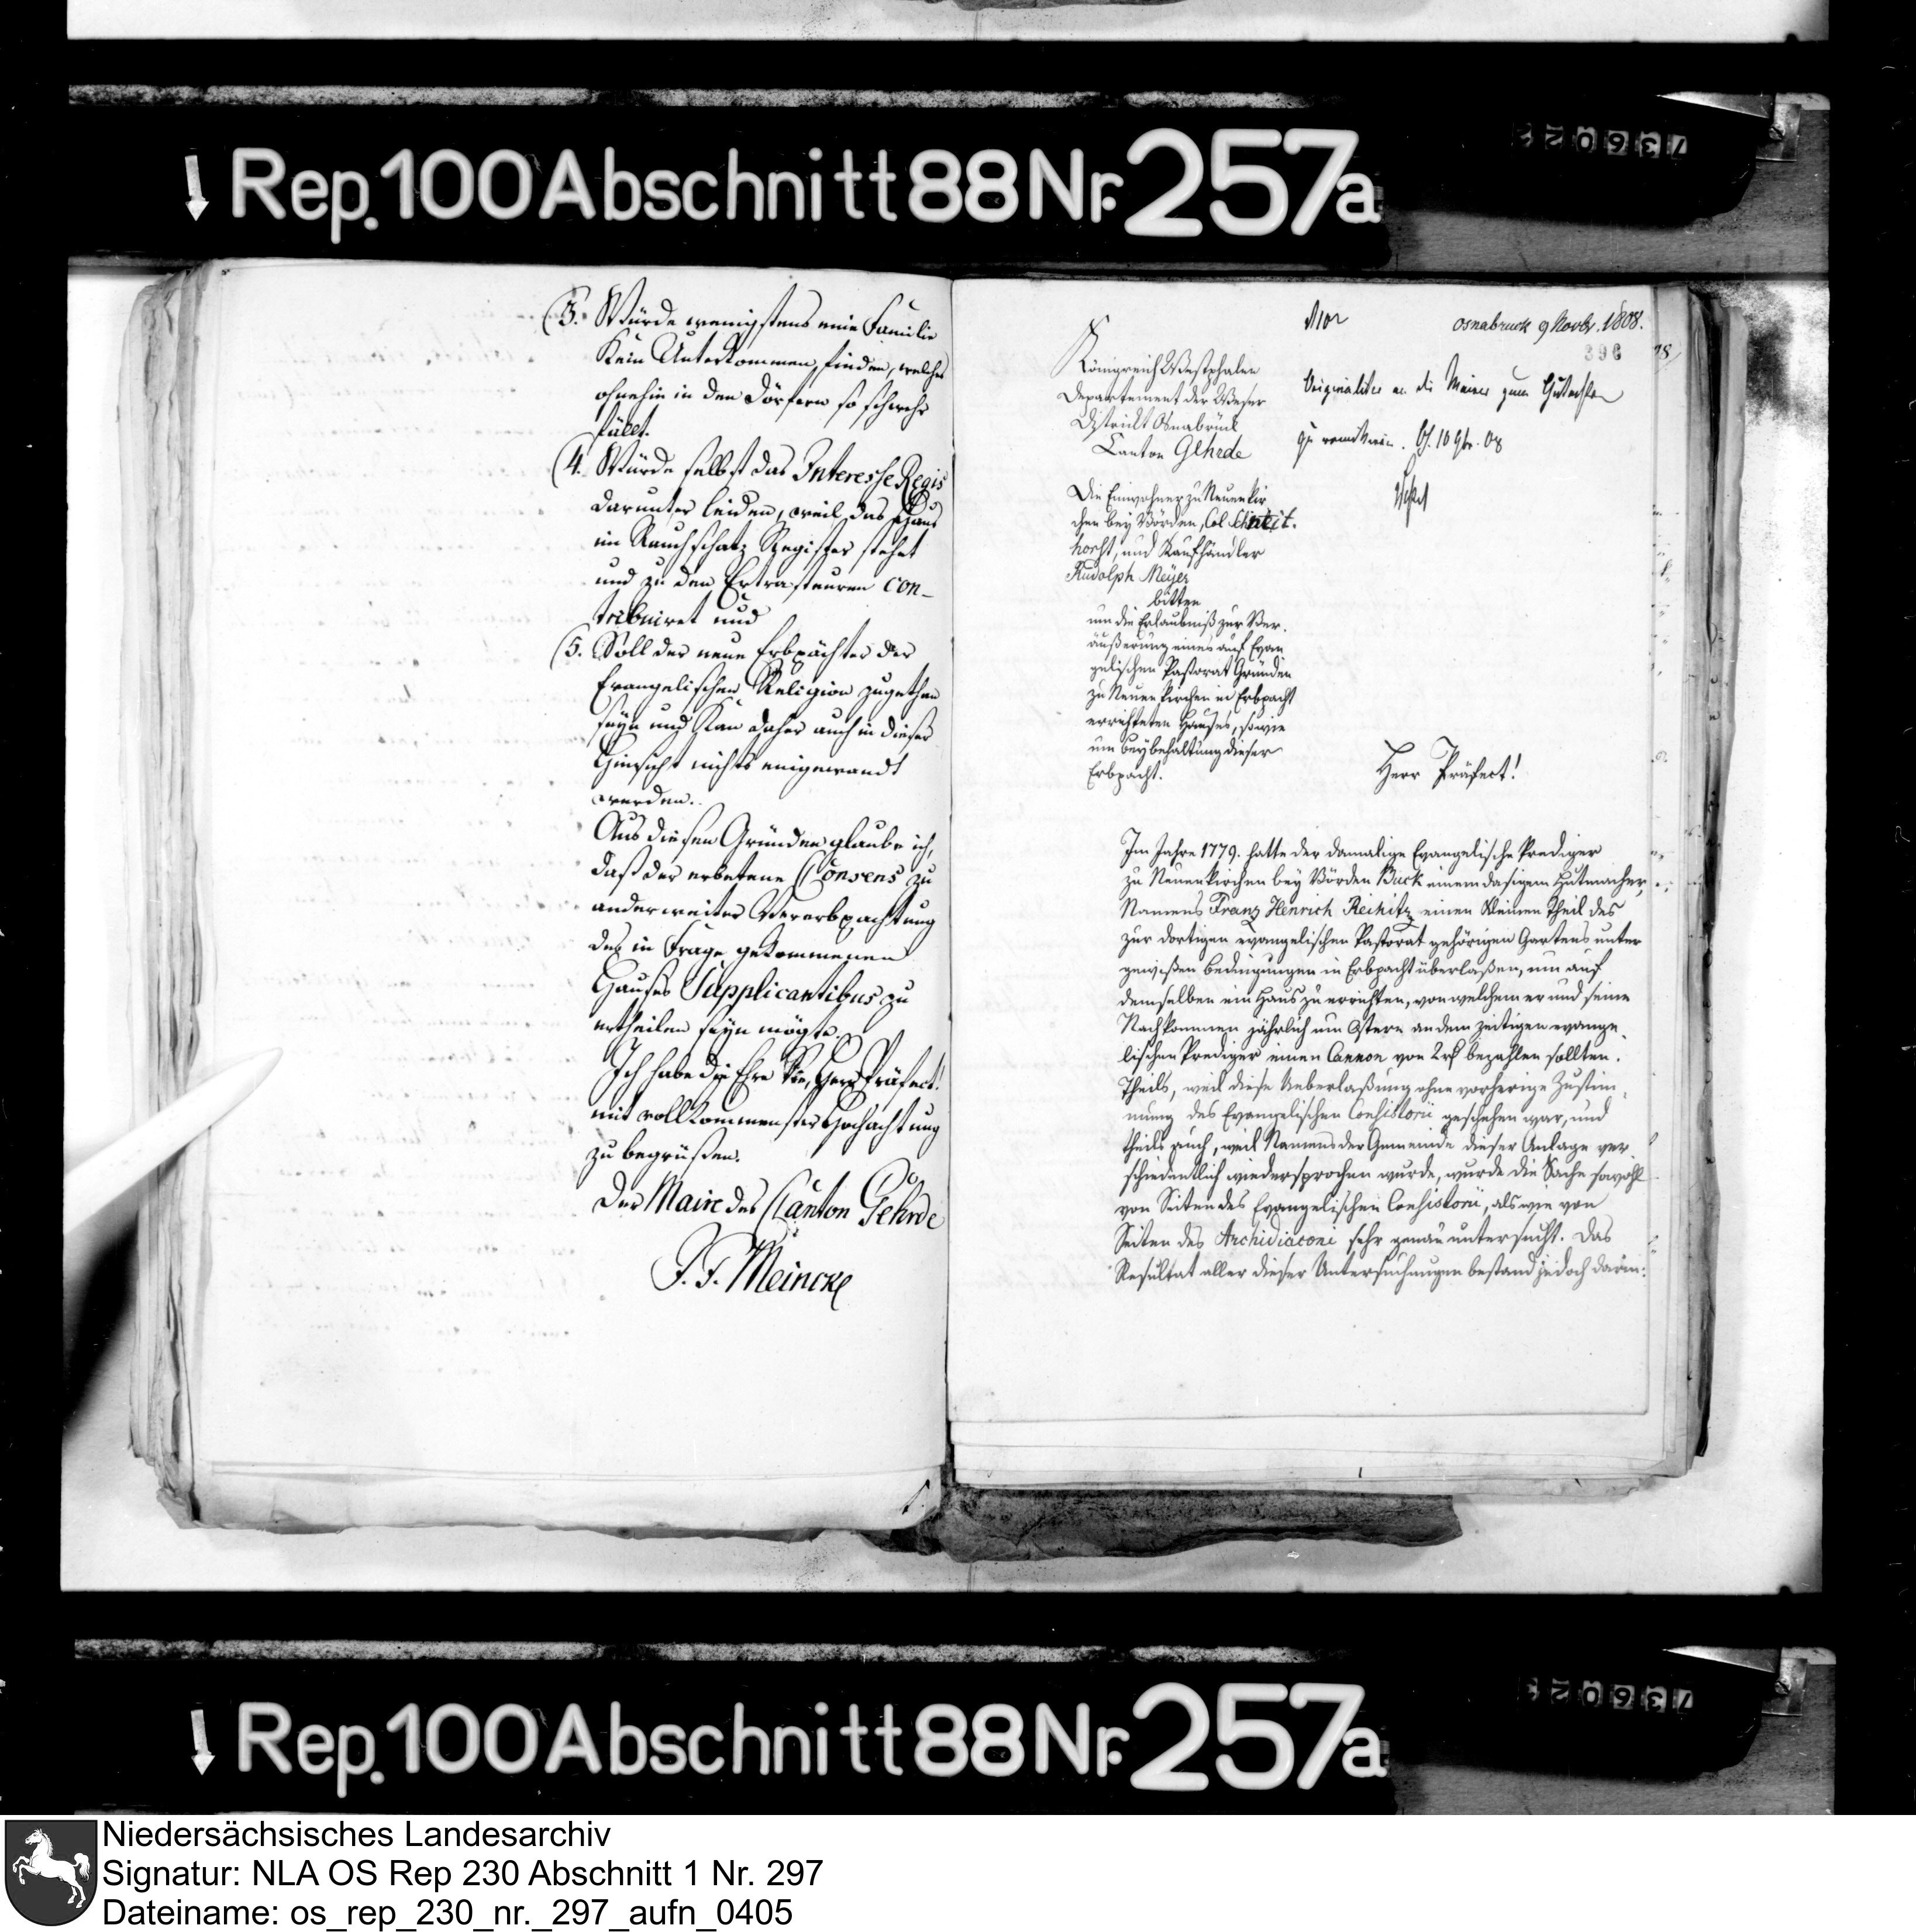 Rep. 100 Abschnitt 88 Nr. 257a
736023
(3. Würde wenigstens eine Familie
kein Unterkommen finden, welches
ohnehin in den Dörfern so schwehr
fället.
(4. Würde selbst das Interesse Regis
darunter leiden, weil das Haus
im Rauchschatz Register stehet
und zu den Extrasteuren con-
tribuiret und
(5. Soll der neue Erbpächter der
Evangelischen Religion zugethan
seyn und kan daher auch in dieser
Hinsicht nichts eingewandt
werden.
Aus diesen Gründen glaube ich,
daß der erbetene Consens zu
anderweiter Vererbpachtung
des in Frage gekommenen
Hauses Supplicantibus zu
ertheilen seyn mögte.
Ich habe die Ehre Sie, Herr Präfect!
mit vollkommenster Hochachtung
zu begrüßen.
Der Maire des Canton Gehrde
F. F. Meincke
Osnabruck 9 Novbr. 1808.
396
Königreich Westphalen
Departement der Weser
District Osnabrück
Canton Gehrde
Originaliter an die Maire zum Gutachten
zu remittiren. O. 10 9br. 08
Die Einwohner zu Neuenkir
chen bey Vörden, Col.
horst, und Kaufhändler
Rudolph Meyer
bitten
um die Erlaubniß zur Ver-
äußerung eines auf Evan
gelischen Pastorat Gründen
zu Neuenkirchen in Erbpacht
errichteten Hauses, sowie
um Beybehaltung dieser
Erbpacht.
Herr Präfect!
Im Jahre 1779. hatte der damalige Evangelische Prediger
zu Neuenkirchen bey Vörden Buck einem dasigem Hutmacher,
Namens Franz Henrich Reihitz einen kleinen Theil des
zur dortigen evangelischen Pastorat gehörigen Gartens unter
gewißen Bedingungen in Erbpacht überlaßen, um auf
demselben ein Haus zu errichten, von welchem er und seine
Nachkommen jährlich um Ostern an dem zeitigen evange-
lischen Prediger einen Cannon von 2 rt bezahlen sollten.
Theils, weil diese Ueberlaßung ohne vorherige Zustim-
mung des Evangelischen Consistorii geschehen war, und
theils auch, weil Namens der Gemeinde dieser Anlage ver-
schiedentlich wiedersprochen wurde, wurde die Sache sowohl
von Seiten des Evangelischen Consistorii, als wie von
Seiten des Archidiaconi sehr genau untersucht. Das
Resultat aller dieser Untersuchungen bestand jedoch darin:
Rep. 100 Abschnitt 88 Nr. 257a
736023
Niedersächsisches Landesarchiv
Signatur: NLA OS Rep 230 Abschnitt 1 Nr. 297
Dateiname: os_rep_230_nr._297_aufn_0405